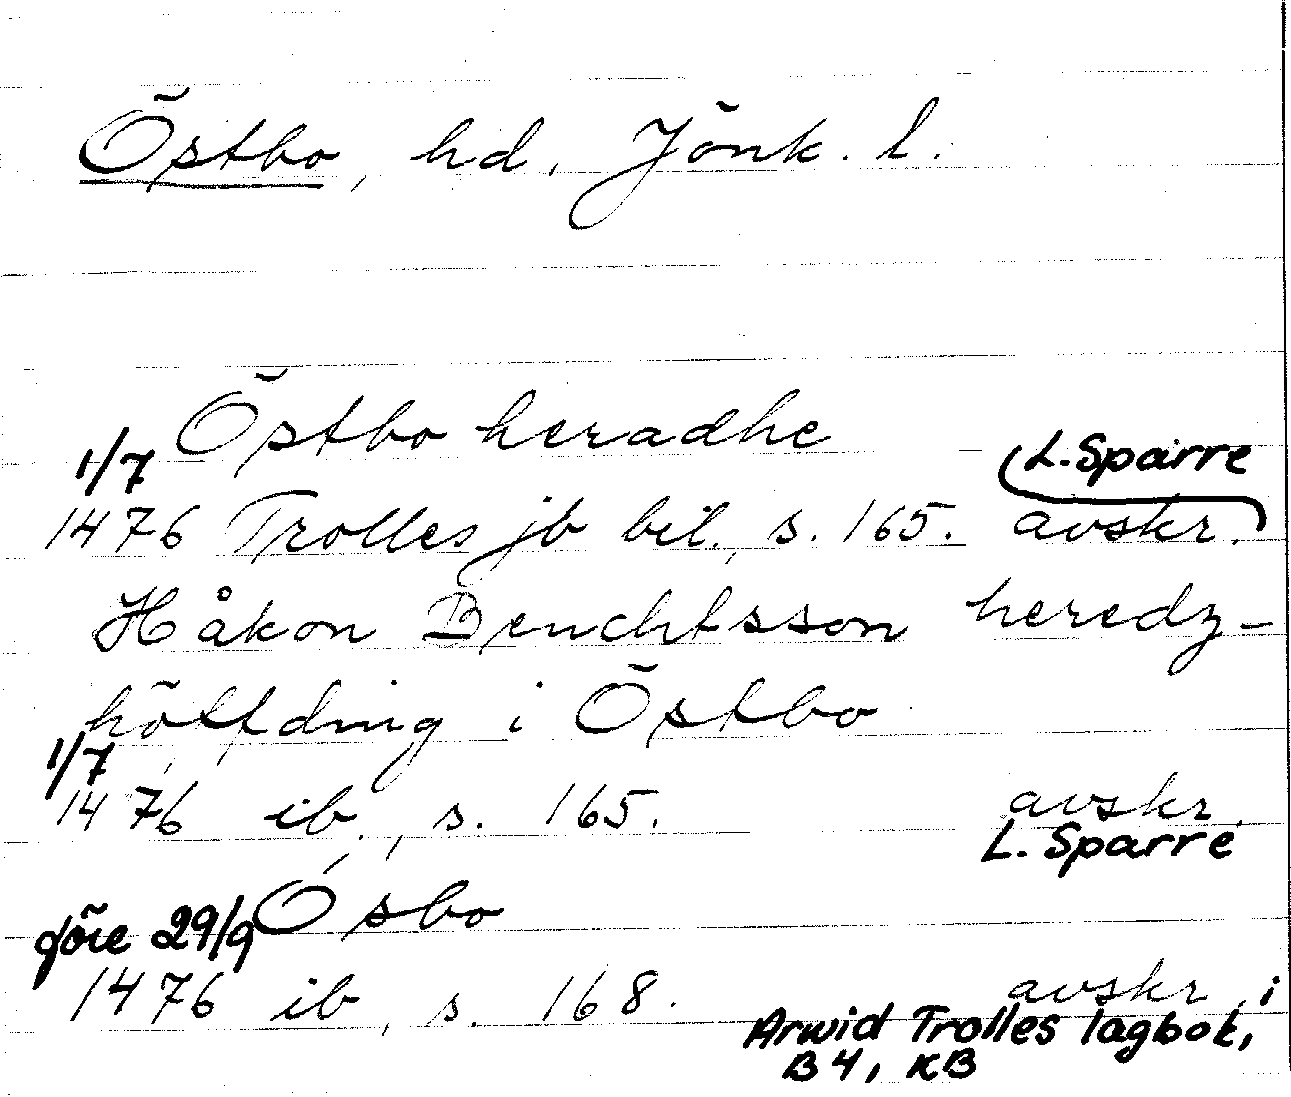 Östbo, hd. Jönk. l.
Östbo heradhe
1/7 L. Sparre
1476 Trolles jb bil., s. 165. avskr.
Håkon Benchtsson heredz-
höffding i Östbo
1/7
1476 ib., s. 165. avskr.
L. Sparre
Ósbo
före 29/9
1476 ib., s. 168. avskr. i
Arwid Trolles lagbok,
B 4, KB